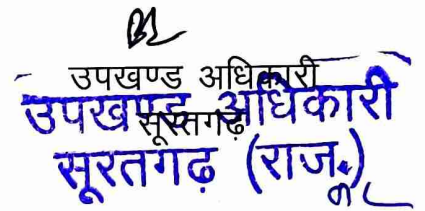 उपखण्ड अधिकारी
सूरतगढ़
उपखण्ड अधिकारी
सूरतगढ़ (राज.)